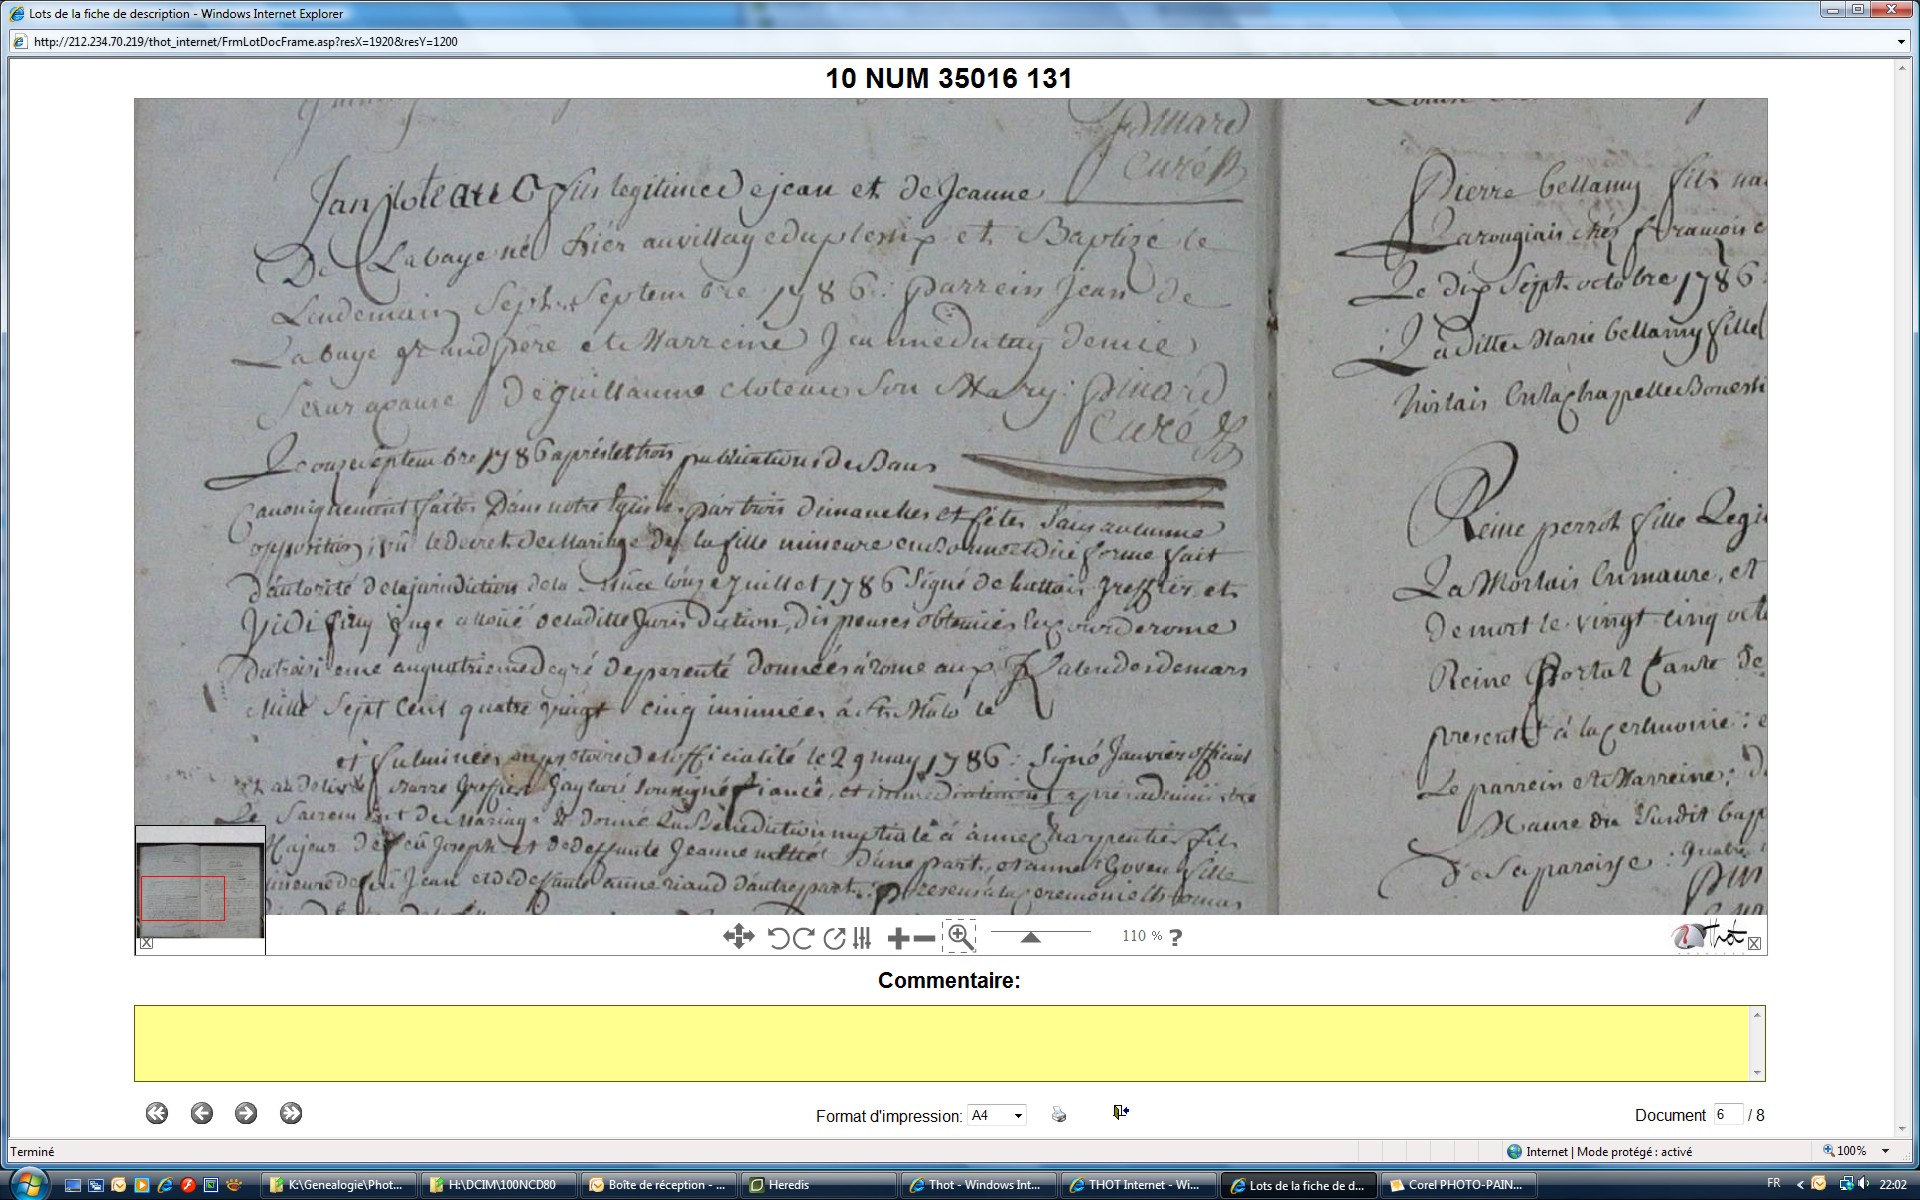 Lots de la fiche de description - Windows Internet Explorer
http://212.234.70.219/thot_internet/FrmLotDocFrame.asp?resX=1920&resY=1200
10 NUM 35016 131
pinard
curé
Jan cloteau fils legitime de jean et de Jeanne
De Labaye né hier au village du plessix et Baptizé le
Lendemain Sept Septembre 1786: parrein Jean De
Labaye grand père et Marreine Jeanne dutay demie
Seur a cause De guillaume cloteau Son Mary: pinard
curé
Le onze Septembre 1786 après les trois publications de Bans
Canoniquement faites Dans notre Eglise par trois dimanches et fêtes Sans aucunne
opposition; vu le decret de Mariage de la fille mineure en bonne et due forme fait
d'autorité de la jurisdiction de la onze juillet 1786 Signé greffier et
juge alloué de la ditte Jurisdiction, dispenses obtenües En cour de rome
du troisieme au quatrieme degré de parenté données à rome aux Kalendes de mars
Mille Sept Cent quatre vingt cinq insinuées à St Malo le
et fulminées au pretoire de l'officialité le 29 may 1786: Signé Janvier official
Greffier Jay Curé Soussigné fiancé, et immediatement après administré
Le Sacrement de Mariage et donné La Bénédiction nuptiale à Charpentier fils
Majeur De feu Joseph et de deffunte Jeanne D'une part, et anne Goven fille
mineure de feu Jean et de deffunte anne riaud d'autre part: presens à la ceremonie thomas
Pierre bellamy fils na
chés francoise
Le dix Sept octobre 1786:
La ditte Marie bellamy fille
En la chapelle Bouexi
Reine perrot fille Legi
La Morlais En maure, et
de mort le vingt cinq octo
Reine Portal tante de
present à la cerimonie: e
Le parrein et Marreine: D
Maure du Susdit bapt
de Sa paroisse:
110 %
?
Thot
Commentaire:
Format d'impression: A4
Document 6 / 8
Terminé
Internet | Mode protégé : activé
100%
K:\Genealogie\Phot...
H:\DCIM\100NCD80
Boîte de réception - ...
Heredis
Thot - Windows Int...
THOT Internet - Wi...
Lots de la fiche de d...
Corel PHOTO-PAIN...
FR
22:02